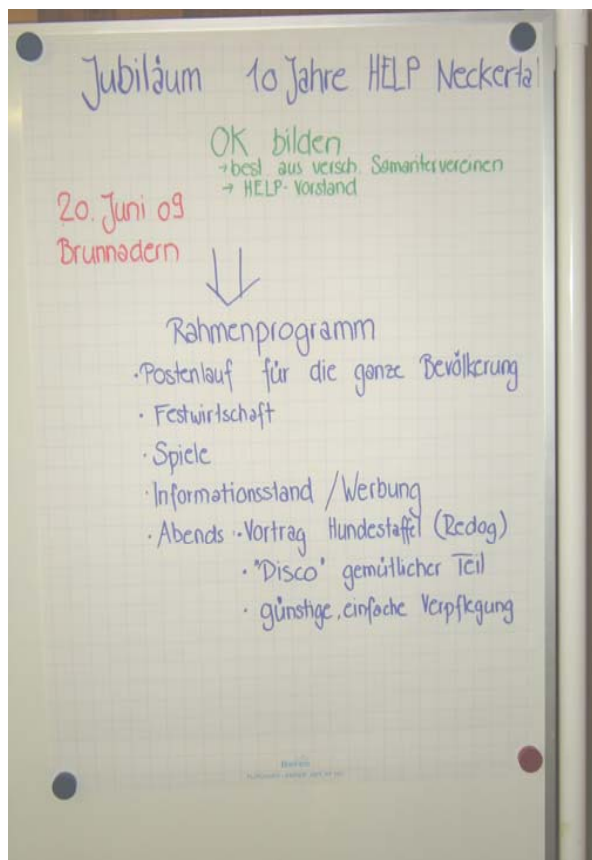 Jubiläum 10 Jahre HELP Neckertal
OK bilden
→ best aus versch. Samaritervereinen
→ HELP-Vorstand
20. Juni 09
Brunnadern
Rahmenprogramm
· Postenlauf für die ganze Bevölkerung
· Festwirtschaft
· Spiele
· Informationsstand / Werbung
· Abends · Vortrag Hundestaffel (Redog)
· "Disco" gemütlicher Teil
· günstige, einfache Verpflegung